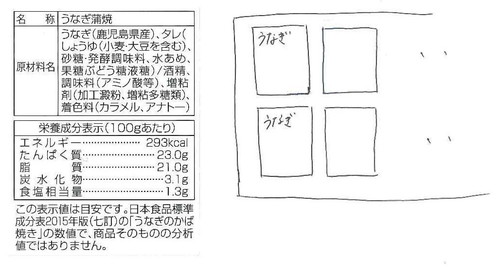 名　称　うなぎ蒲焼
原材料名　うなぎ(鹿児島県産)、タレ(
しょうゆ(小麦・大豆を含む)、
砂糖・発酵調味料、水あめ、
果糖ぶどう糖液糖)/酒精、
調味料(アミノ酸等)、増粘
剤(加工澱粉、増粘多糖類)、
着色料(カラメル、アナトー)
栄養成分表示(100gあたり)
エネルギー……………293kcal
たんぱく質……………23.0g
脂　　質……………21.0g
炭水化物……………3.1g
食塩相当量……………1.3g
この表示値は目安です。日本食品標準
成分表2015年版(七訂)の「うなぎのかば
焼き」の数値で、商品そのものの分析
値ではありません。
うなぎ
うなぎ